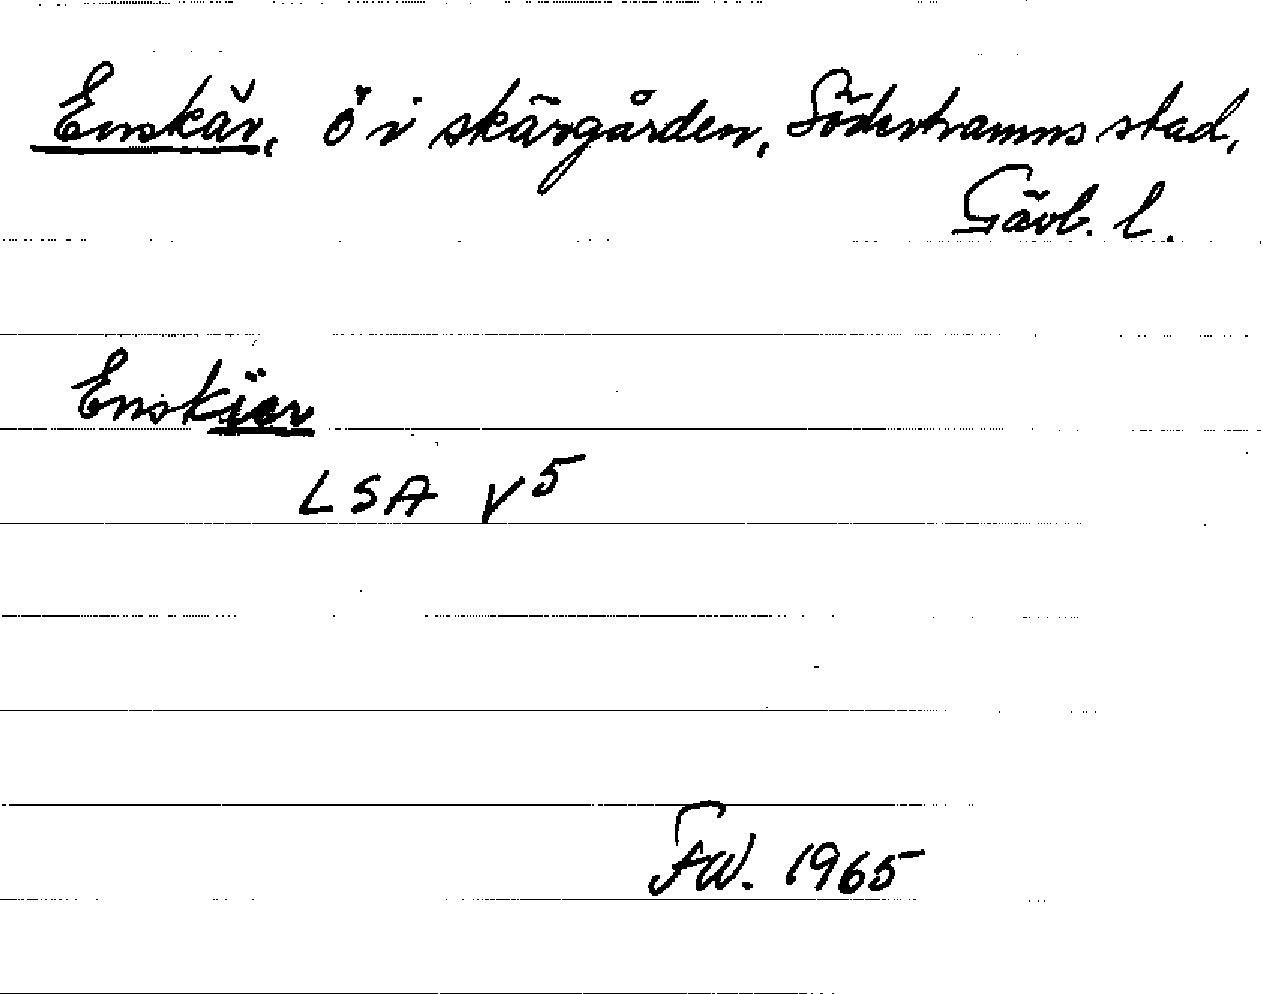 Enskär, ö i skärgården, Söderhamns stad,
Gävl. l.
Enskiär
LSA V5
FW. 1965